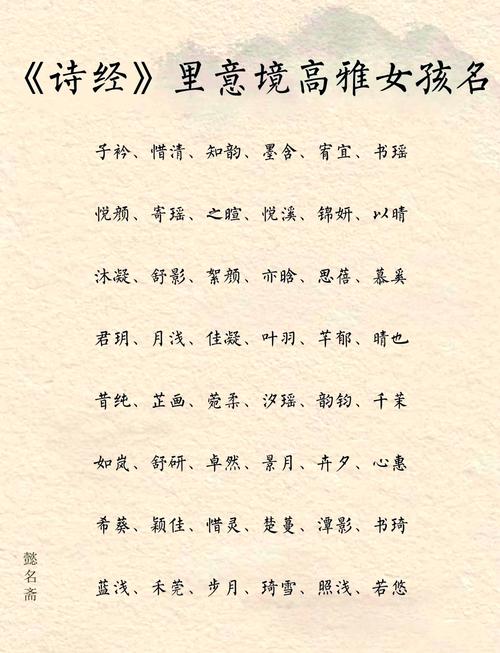 《诗经》里意境高雅女孩名
子衿、惜清、知韵、墨含、宥宜、书瑶
悦颜、寄瑶、之暄、悦溪、锦妍、以晴
沐凝、舒影、絮颜、亦晗、思蓓、慕奚
君玥、月浅、佳凝、叶羽、芊郁、晴也
昔纯、芷画、菀柔、汐瑶、韵钧、千茉
如岚、舒研、卓然、景月、卉夕、心惠
希葵、颖佳、惜灵、楚蔓、潭影、书琦
蓝浅、禾莞、步月、琦雪、照浅、若悠
懿名斋